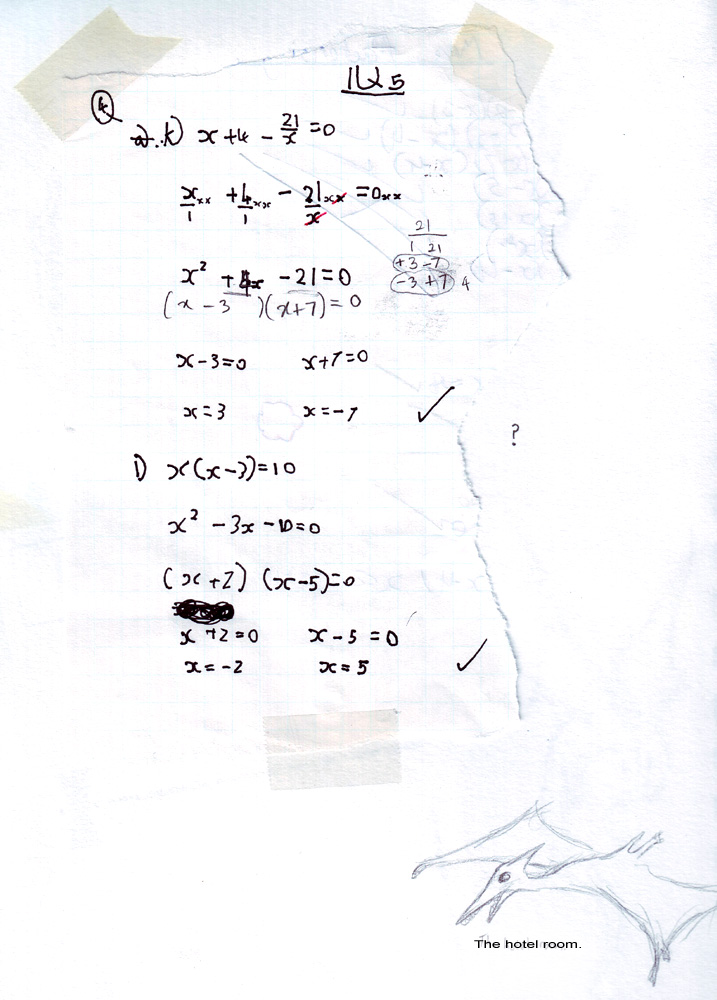 11Q5
④
a. k) x + 4 - 21/x = 0
x/1 ×x + 4/1 ×x - 21/x ×x = 0×x
21
1 21
+3 -7
-3 +7 4
x² + 4x - 21 = 0
(x - 3 )(x + 7) = 0
x - 3 = 0 x + 7 = 0
x = 3 x = -7 ✓
?
l) x(x - 3) = 10
x² - 3x - 10 = 0
(x + 2) (x - 5) = 0
x + 2 = 0 x - 5 = 0
x = -2 x = 5 ✓
The hotel room.